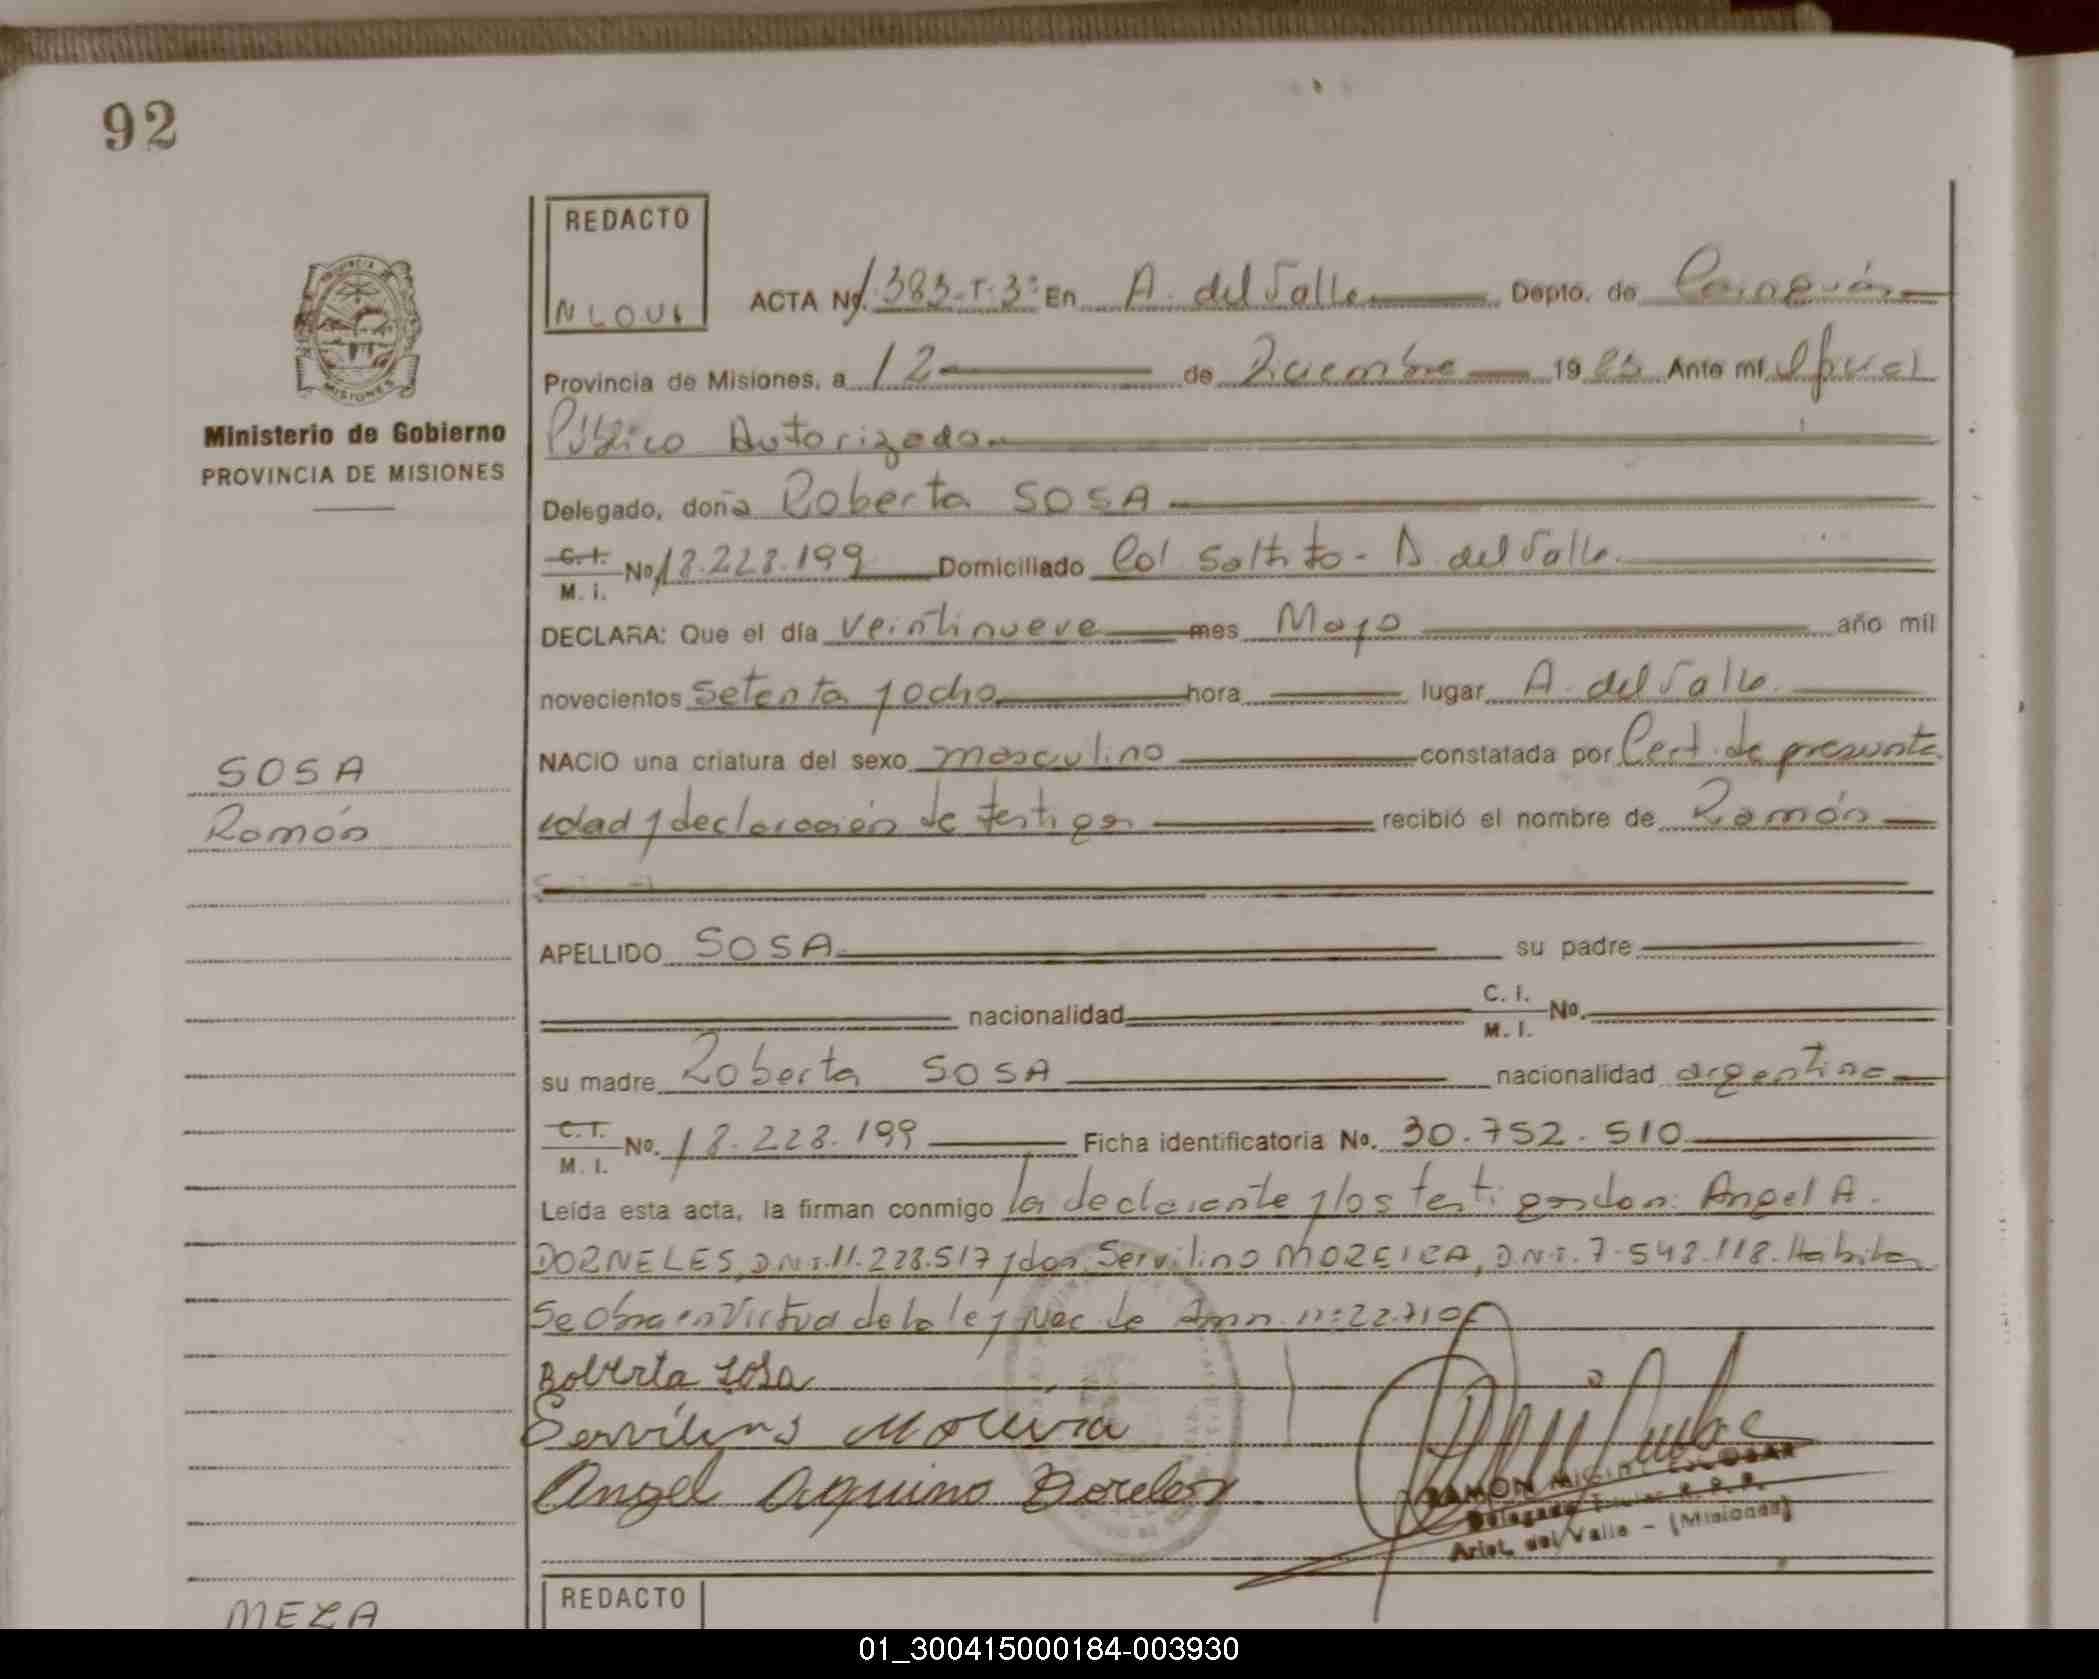 92
REDACTO
ACTA Nº 1.383-T.3º En A. del Valle Depto. de Cainguás
Provincia de Misiones, a 12 de Diciembre 19 85 Ante mí Oficial
Ministerio de Gobierno
PROVINCIA DE MISIONES
Público Autorizado
Delegado, doña Roberta SOSA
C. I.
M. I. No 18.228.199 Domiciliado Col Saltito - A. del Valle
DECLARA: Que el día veintinueve mes Mayo año mil
novecientos setenta y ocho hora lugar A. del Valle
NACIO una criatura del sexo masculino constatada por Cert. de presunta
SOSA
Ramón
edad y declaración de testigos recibió el nombre de Ramón
APELLIDO SOSA su padre
nacionalidad C. I.
M. I. No.
su madre Roberta SOSA nacionalidad argentina
C. I.
M. I. No. 18.228.199 Ficha identificatoria No. 30.752.510
Leída esta acta, la firman conmigo la declarante y los testigos don: Angel A.
DORNELES, D.N.I. 11.228.517 y don Servilino MOREIRA, D.N.I. 7.548.118. Habiles
Se Obra en Virtud de la ley Nac de Amn. nº 22.710
Roberta Sosa
Servilino Moreira
Angel Aquino Dorneles
RAMON MIGUEL ESCOBAR
Delegado R. P. P.
Arist. del Valle - (Misiones)
REDACTO
MEZA
01_300415000184-003930